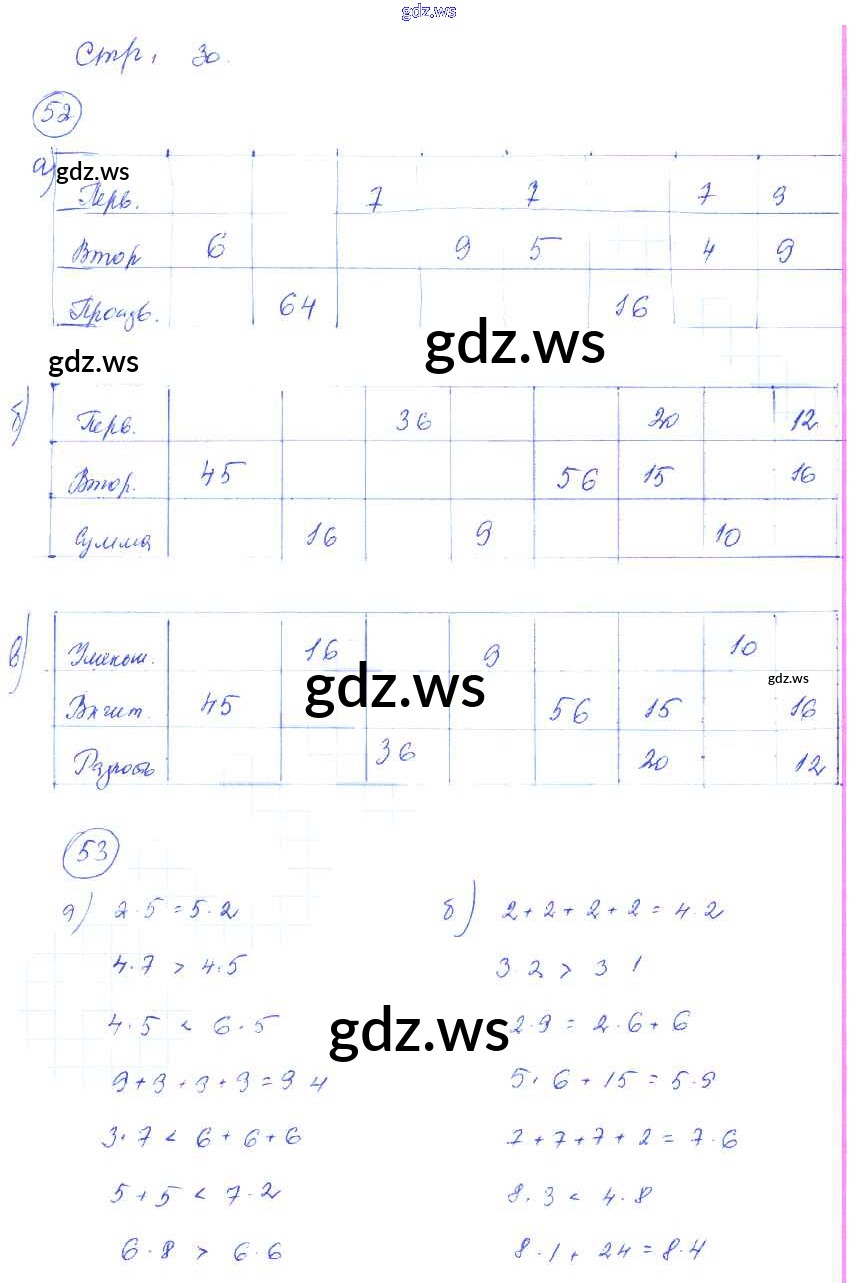 gdz.ws
Стр. 30.
52
а)
gdz.ws
Перв. 7 7 7 9
Втор 6 9 5 4 9
Произв. 64 16
gdz.ws
gdz.ws
б)
Перв. 36 20 12
Втор. 45 56 15 16
Сумма 16 9 10
в)
Уменьш. 16 9 10
gdz.ws
gdz.ws
Вычит. 45 56 15 16
Разность 36 20 12
53
а) 2·5=5·2
4·7 > 4·5
4·5 < 6·5
9+9+9+9=9·4
3·7 < 6+6+6
5+5 < 7·2
6·8 > 6·6
б) 2+2+2+2=4·2
3·2 > 3·1
gdz.ws
2·9=2·6+6
5·6+15=5·9
7+7+7+2=7·6
8·3 < 4·8
8·1+24=8·4